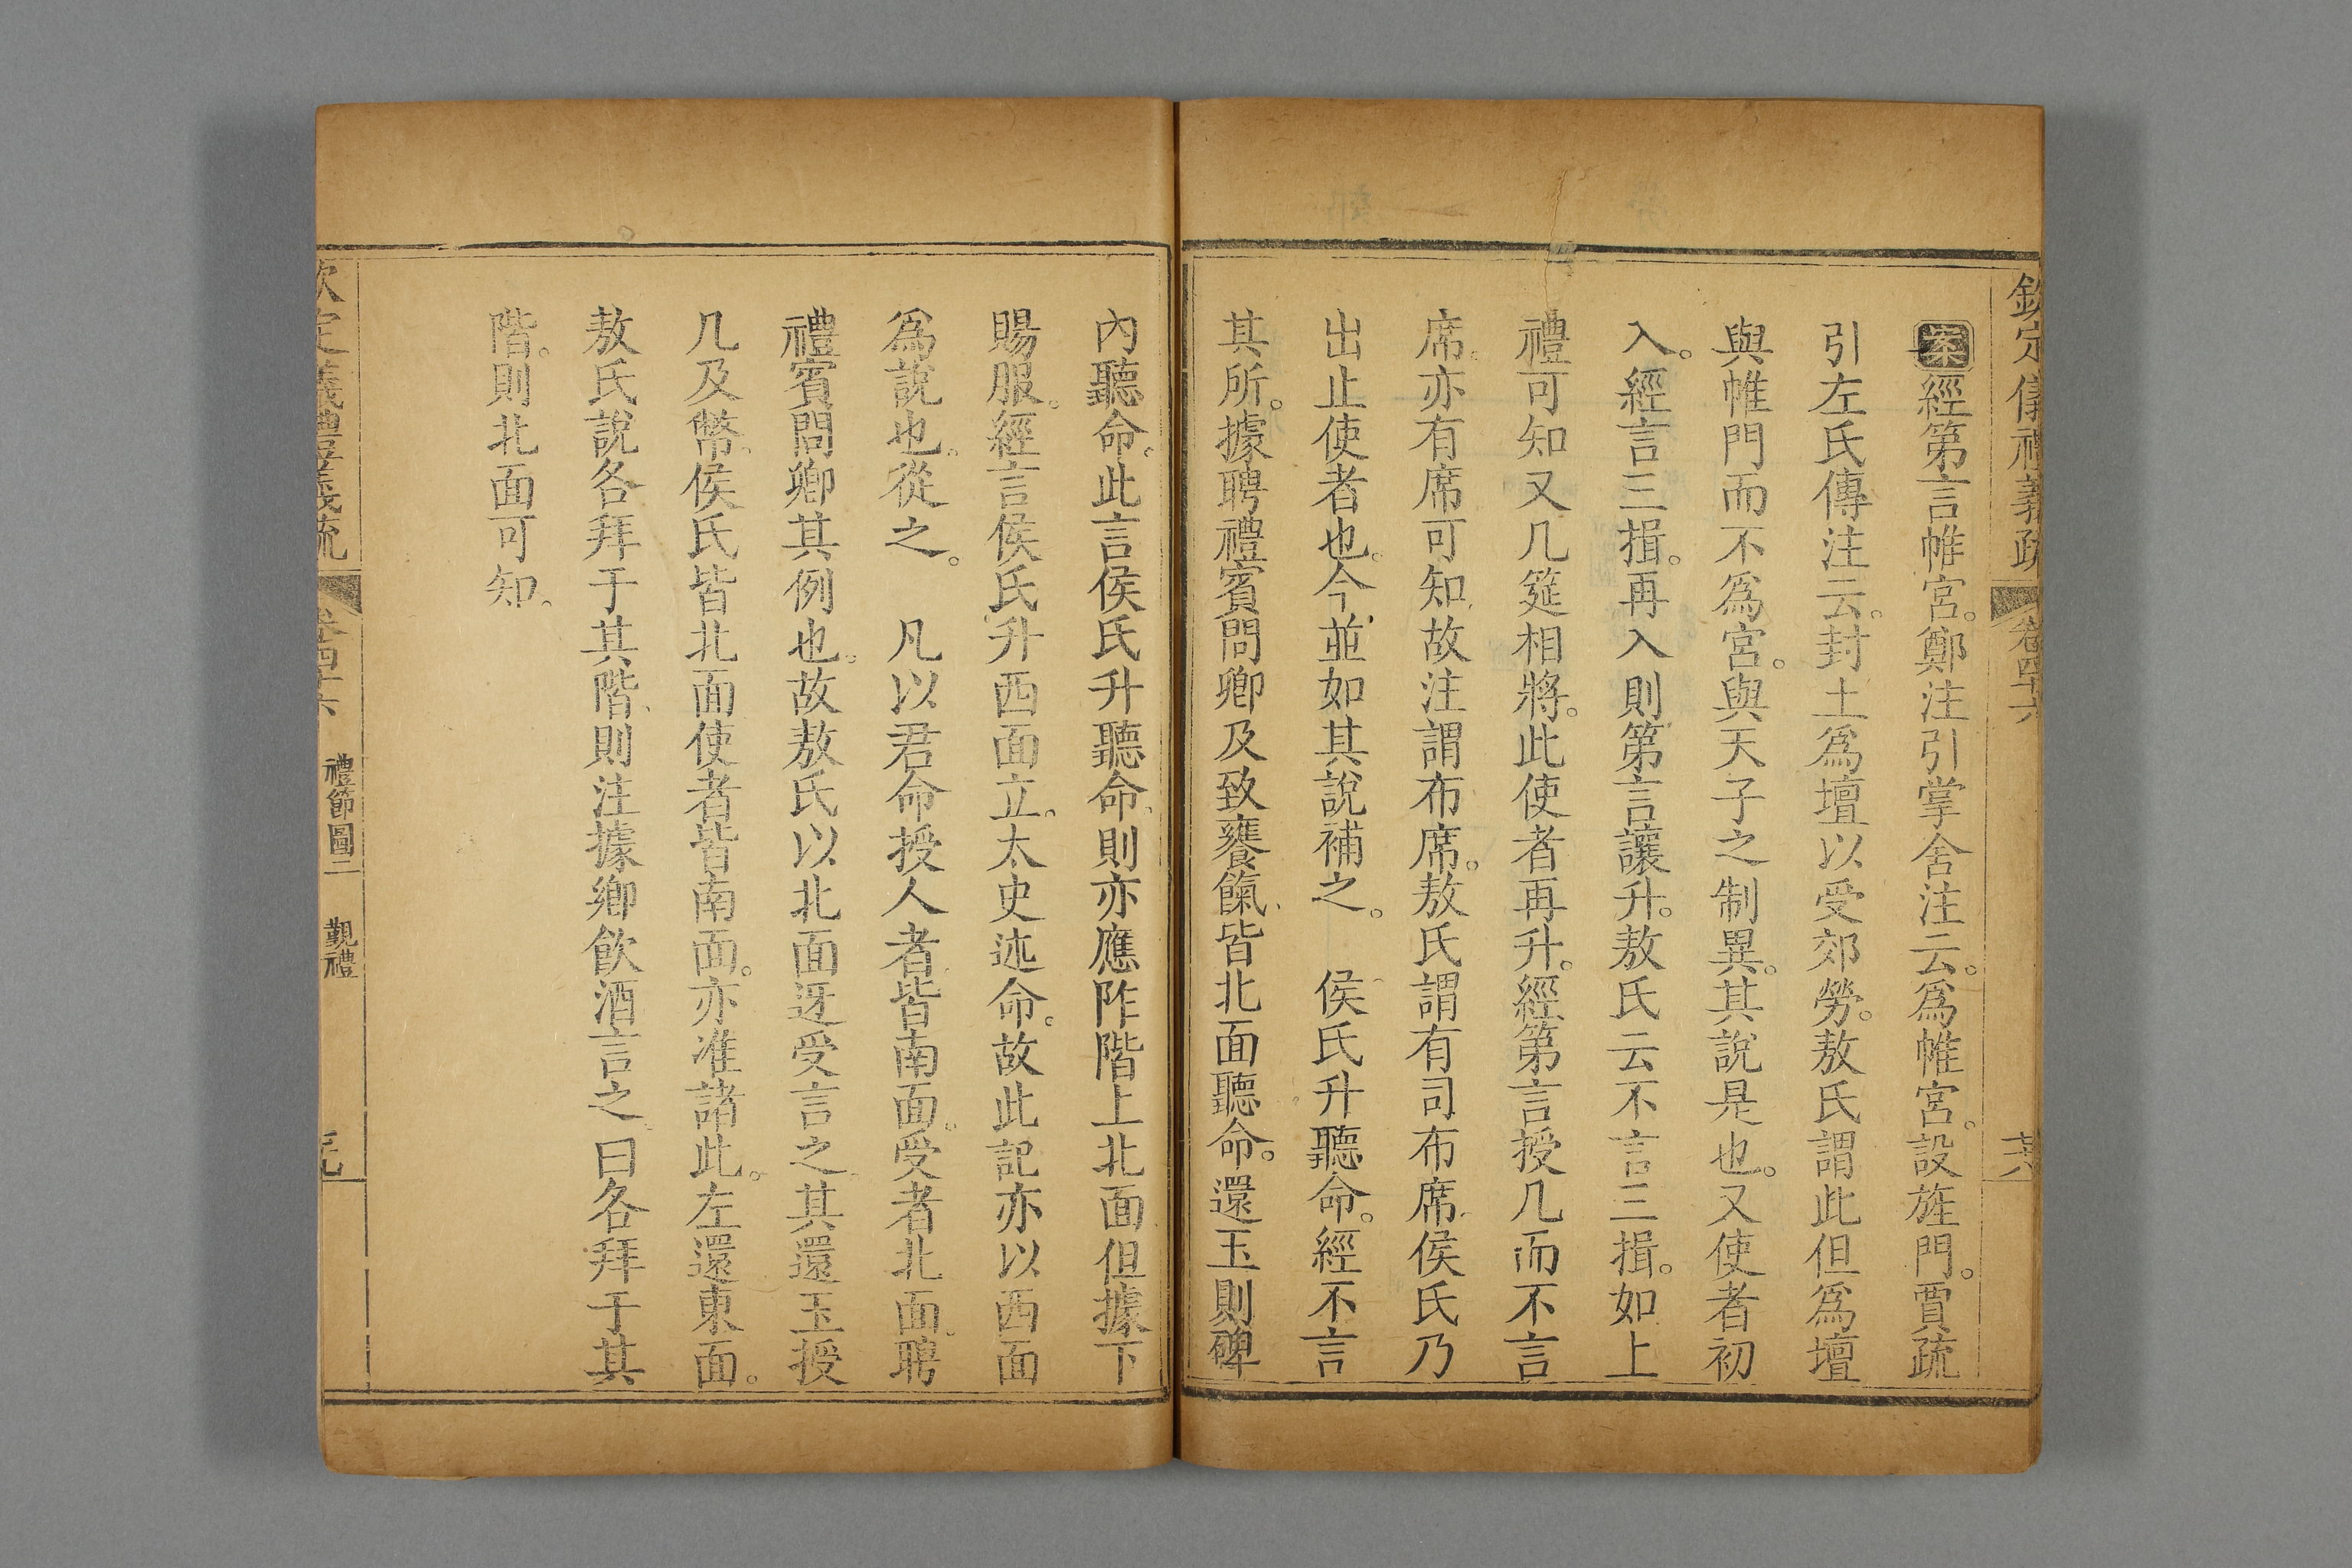 欽定儀禮義疏 卷四十六 
案經第言帷宮。鄭注引掌舍注云。爲帷宮。設旌門。賈疏
引左氏傳注云。封土爲壇以受郊勞。敖氏謂此但爲壇
與帷門而不爲宮。與天子之制異。其說是也。又使者初
入。經言三揖。再入則第言讓升。敖氏云不言三揖。如上
禮可知又几筵相將。此使者再升。經第言授几而不言
席。亦有席可知。故注謂布席。敖氏謂有司布席。侯氏乃
出止使者也。今並如其說補之。 侯氏升聽命。經不言
其所。據聘禮賓問卿及致饔餼。皆北面聽命。還玉則碑
內聽命。此言侯氏升聽命。則亦應阼階上北面但據下
賜服。經言侯氏升西面立。太史述命。故此記亦以西面
爲說也。從之。 凡以君命授人者。皆南面。受者北面。聘
禮賓問卿其例也。故敖氏以北面迓受言之。其還玉授
几及幣。侯氏皆北面使者皆南面。亦准諸此。左還東面。
敖氏說各拜于其階。則注據鄉飲酒言之。曰各拜于其
階。則北面可知。
欽定儀禮義疏 卷四十六 禮節圖二 覲禮